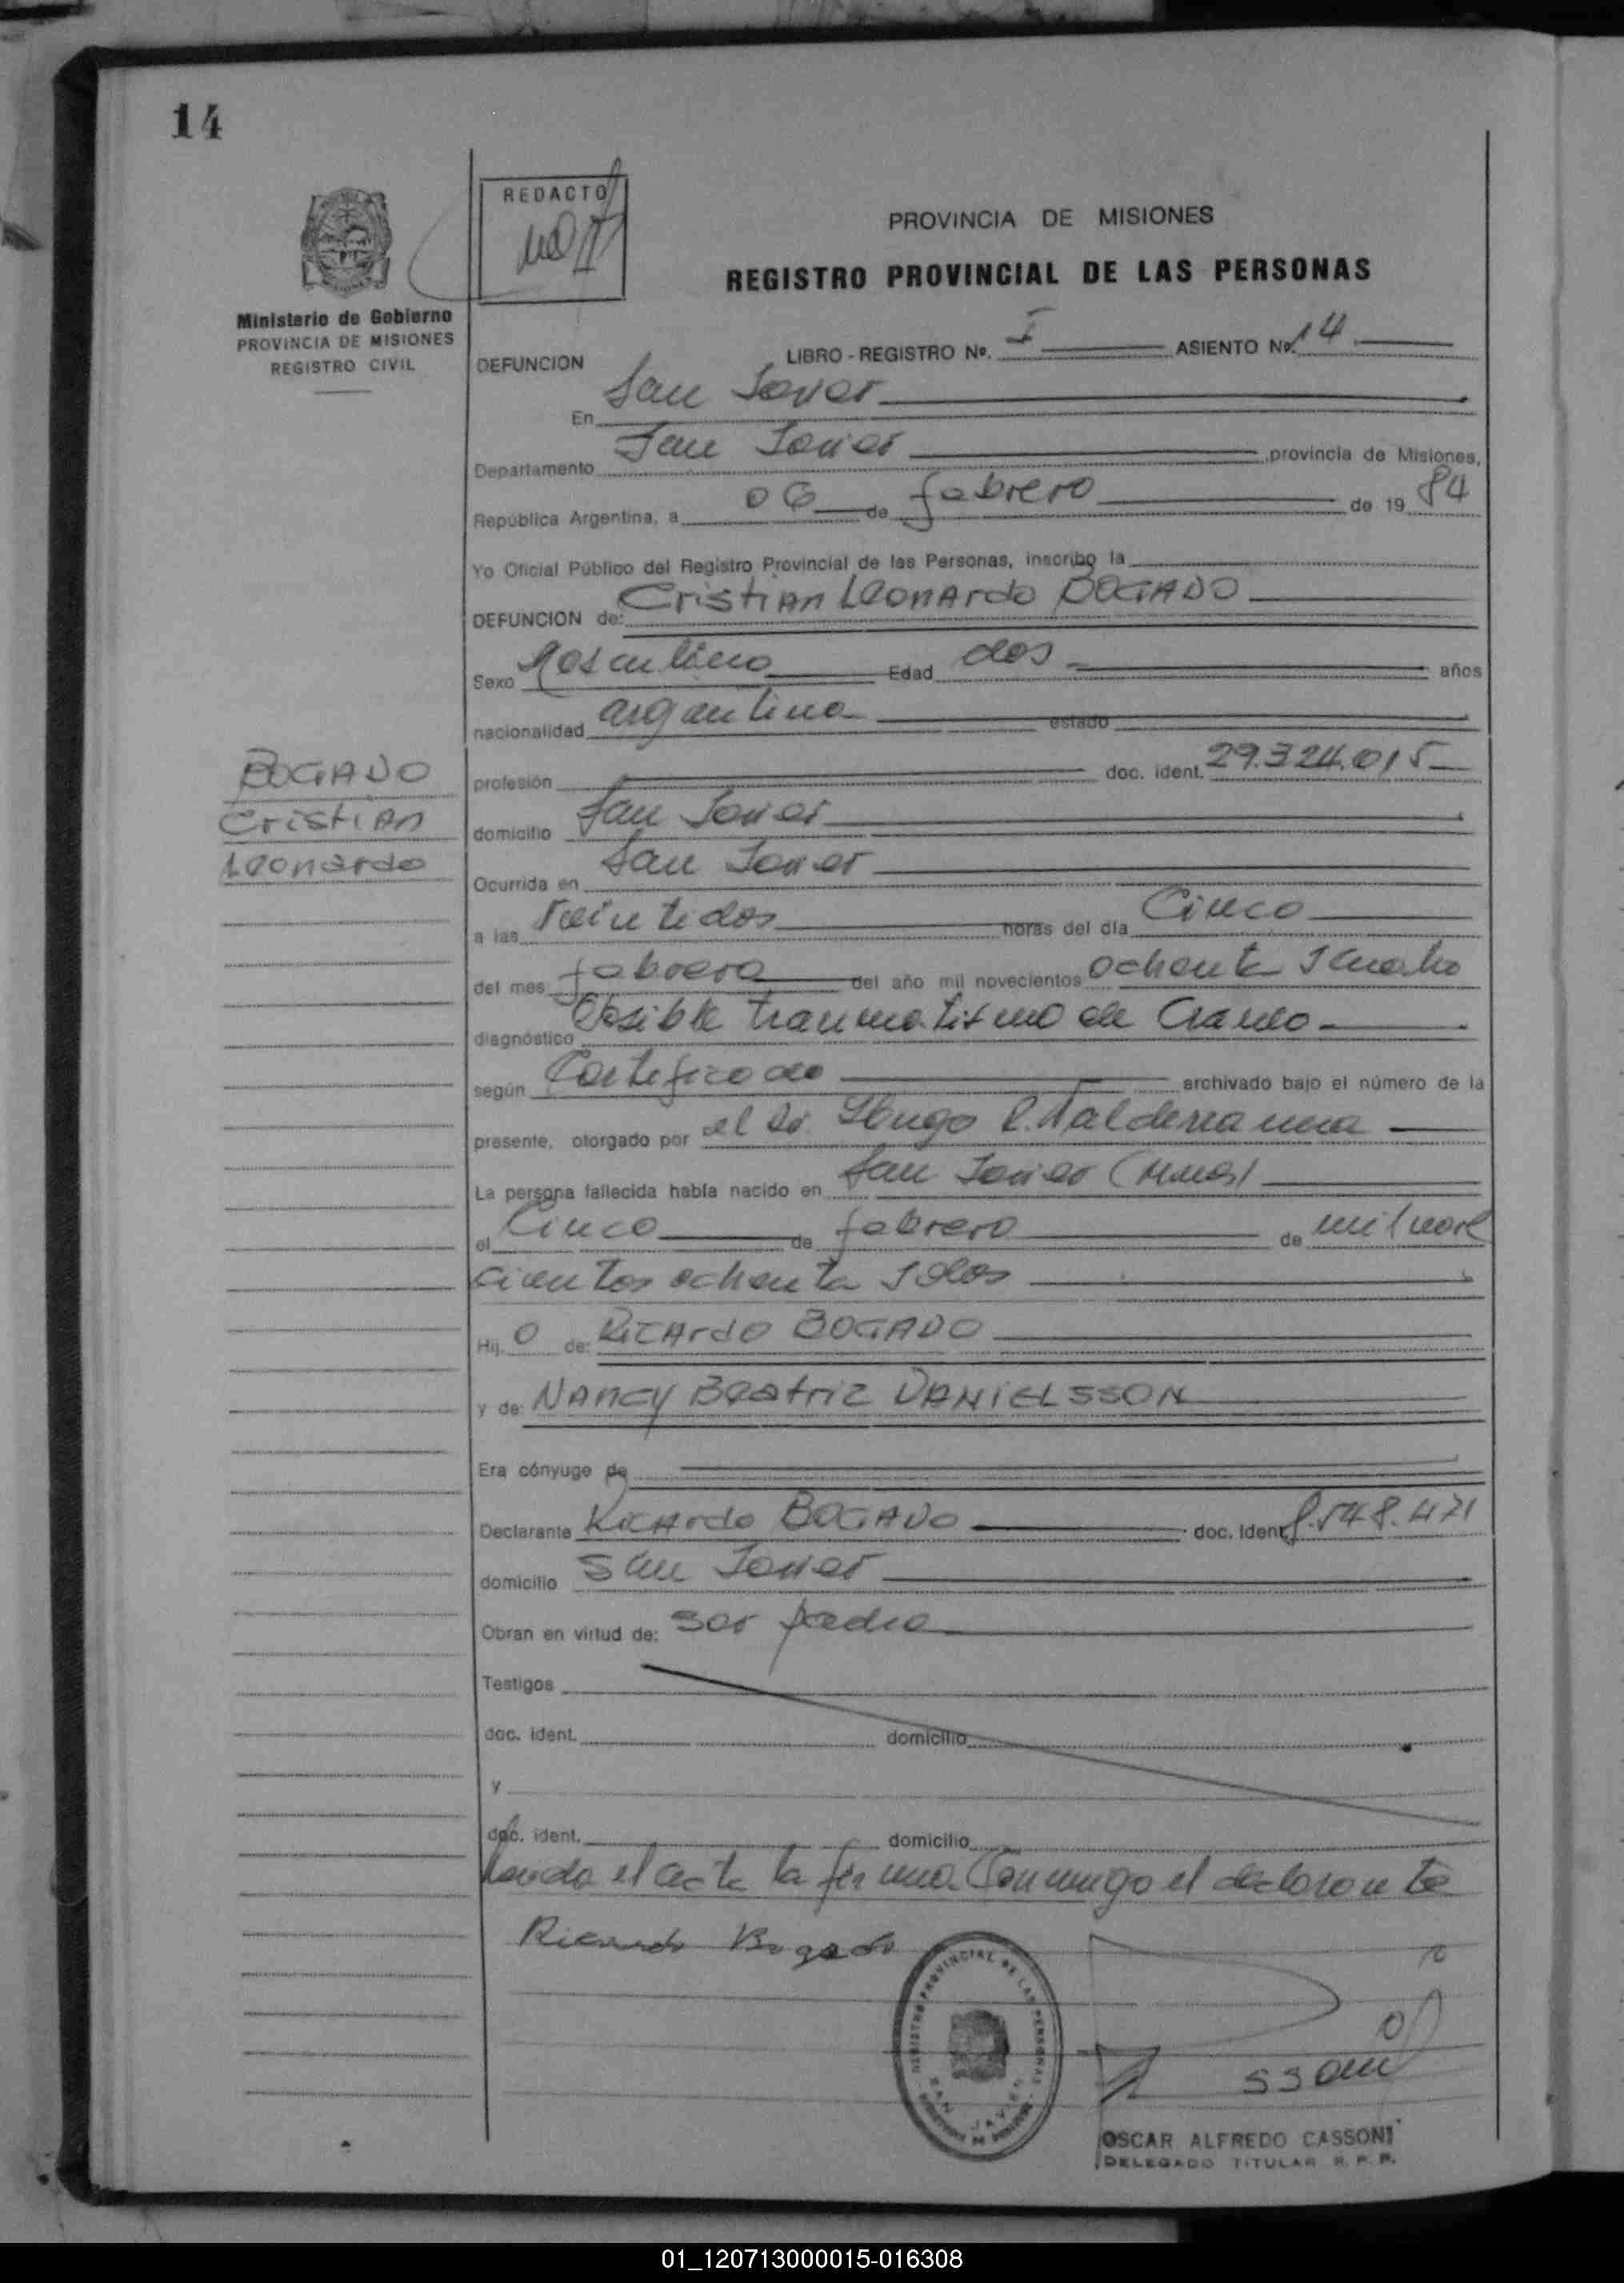 14
REDACTO
PROVINCIA DE MISIONES
REGISTRO PROVINCIAL DE LAS PERSONAS
Ministerio de Gobierno
PROVINCIA DE MISIONES
REGISTRO CIVIL
DEFUNCION LIBRO - REGISTRO Nº. I ASIENTO Nº. 14
En San Javier
Departamento San Javier provincia de Misiones,
República Argentina, a 06 de febrero de 19 84
Yo Oficial Público del Registro Provincial de las Personas, inscribo la
DEFUNCION de: Cristian Leonardo BOGADO
Sexo Masculino Edad dos años
nacionalidad argentina estado
BOGADO
Cristian
Leonardo
profesión doc. ident. 29.324.015
domicilio San Javier
Ocurrida en San Javier
a las Veintidos horas del día Cinco
del mes febrero del año mil novecientos ochenta y cuatro
diagnóstico Posible traumatismo de Craneo
según Certificado archivado bajo el número de la
presente, otorgado por el Dr. Hugo R. Valderrama
La persona fallecida había nacido en San Javier (Mnes)
el Cinco de febrero de mil nove
cientos ochenta y dos
Hij o de: Ricardo BOGADO
y de: Nancy Beatriz DANIELSSON
Era cónyuge de
Declarante Ricardo BOGADO doc. ident. 8.548.471
domicilio San Javier
Obran en virtud de: ser padre
Testigos
doc. ident. domicilio
y
doc. ident. domicilio
Leida el acta la firma Conmigo el declarante
Ricardo Bogado
REGISTRO PROVINCIAL DE LAS PERSONAS
SAN JAVIER
OSCAR ALFREDO CASSONI
DELEGADO TITULAR R. P. P.
01_120713000015-016308